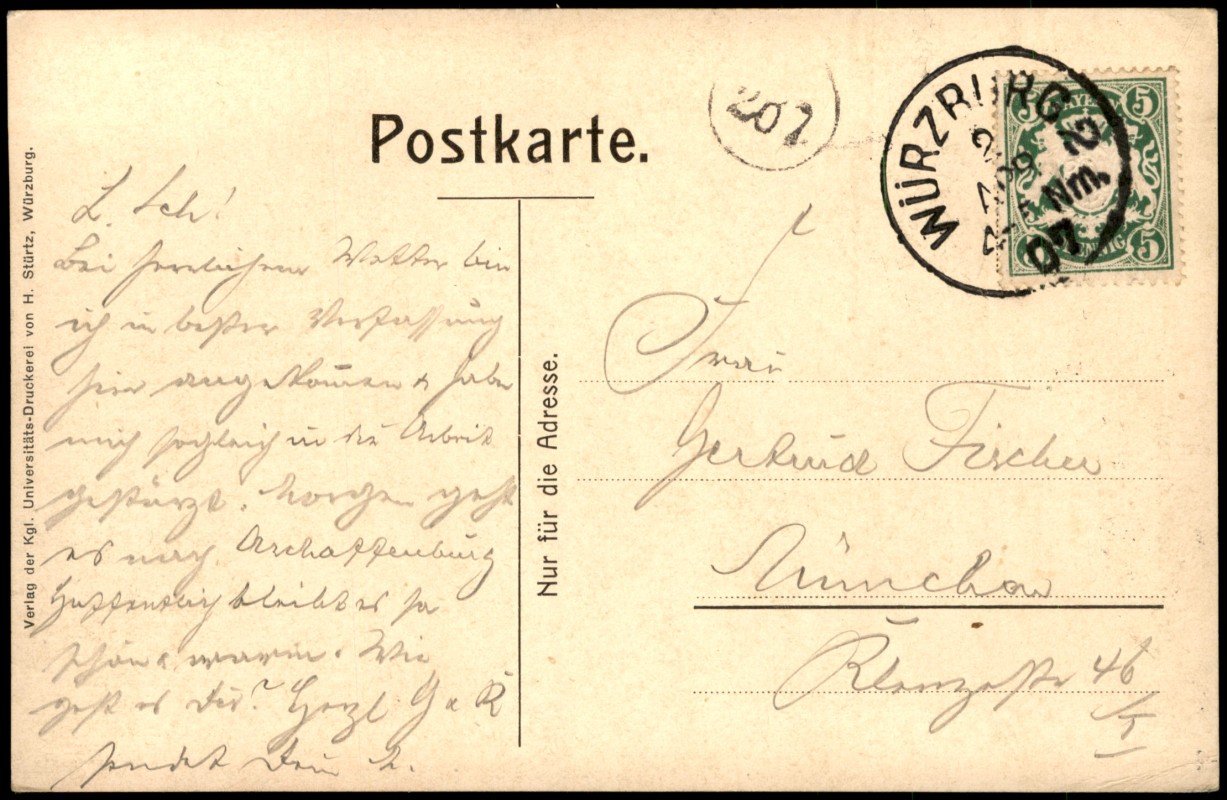 Postkarte.
201
WÜRZBURG 2
2 APR
4-5 Nm.
07
BAYERN
5
5
PFENNIG
Verlag der Kgl. Universitäts-Druckerei von H. Stürtz, Würzburg.
Nur für die Adresse.
L. Sch!
Bei herrlichem Wetter bin
ich in bester Verfassung
hier angekommen & habe
mich sogleich in die Arbeit
gestürzt. Morgen geht
es nach Aschaffenburg
Hoffentlich bleibt es so
schön & warm. Wie
geht es Dir? Herzl G u K
sendet Dein
Frau
Gertrud Fischer
München
Klenzestr 46
/I